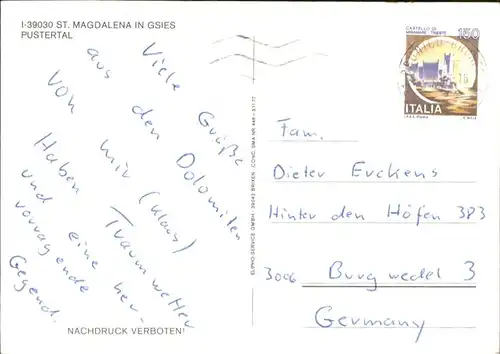 I-39030 ST. MAGDALENA IN GSIES
PUSTERTAL
Viele Grüße
aus den Dolomiten
von mir (Klaus)
Haben Traumwetter
und eine her-
vorragende
Gegend.
NACHDRUCK VERBOTEN!
CASTELLO DI
MIRAMARE · TRIESTE
150
ITALIA
Fam.
Dieter Erckens
Hinter den Höfen 383
3006 Burgwedel 3
Germany